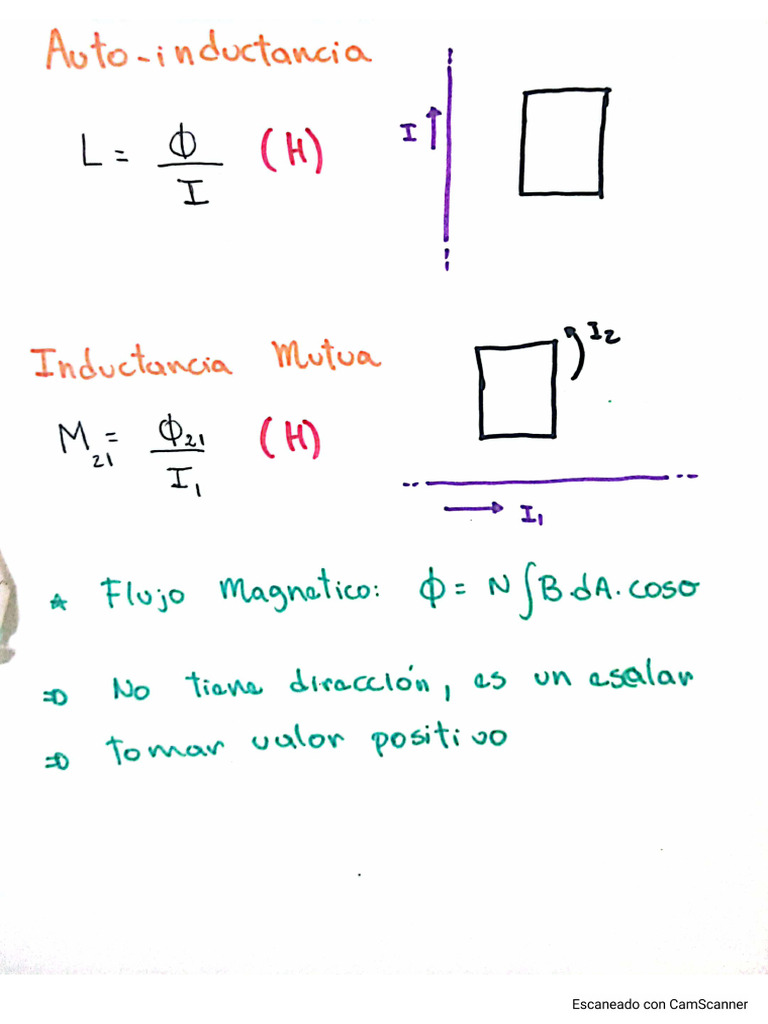 Auto-inductancia
L = Φ/I (H)
I
Inductancia Mutua
I2
M21 = Φ21/I1 (H)
I1
* Flujo Magnetico: Φ = N ∫B.dA.cosσ
⇒ No tiene dirección, es un esalar
⇒ tomar valor positivo
Escaneado con CamScanner